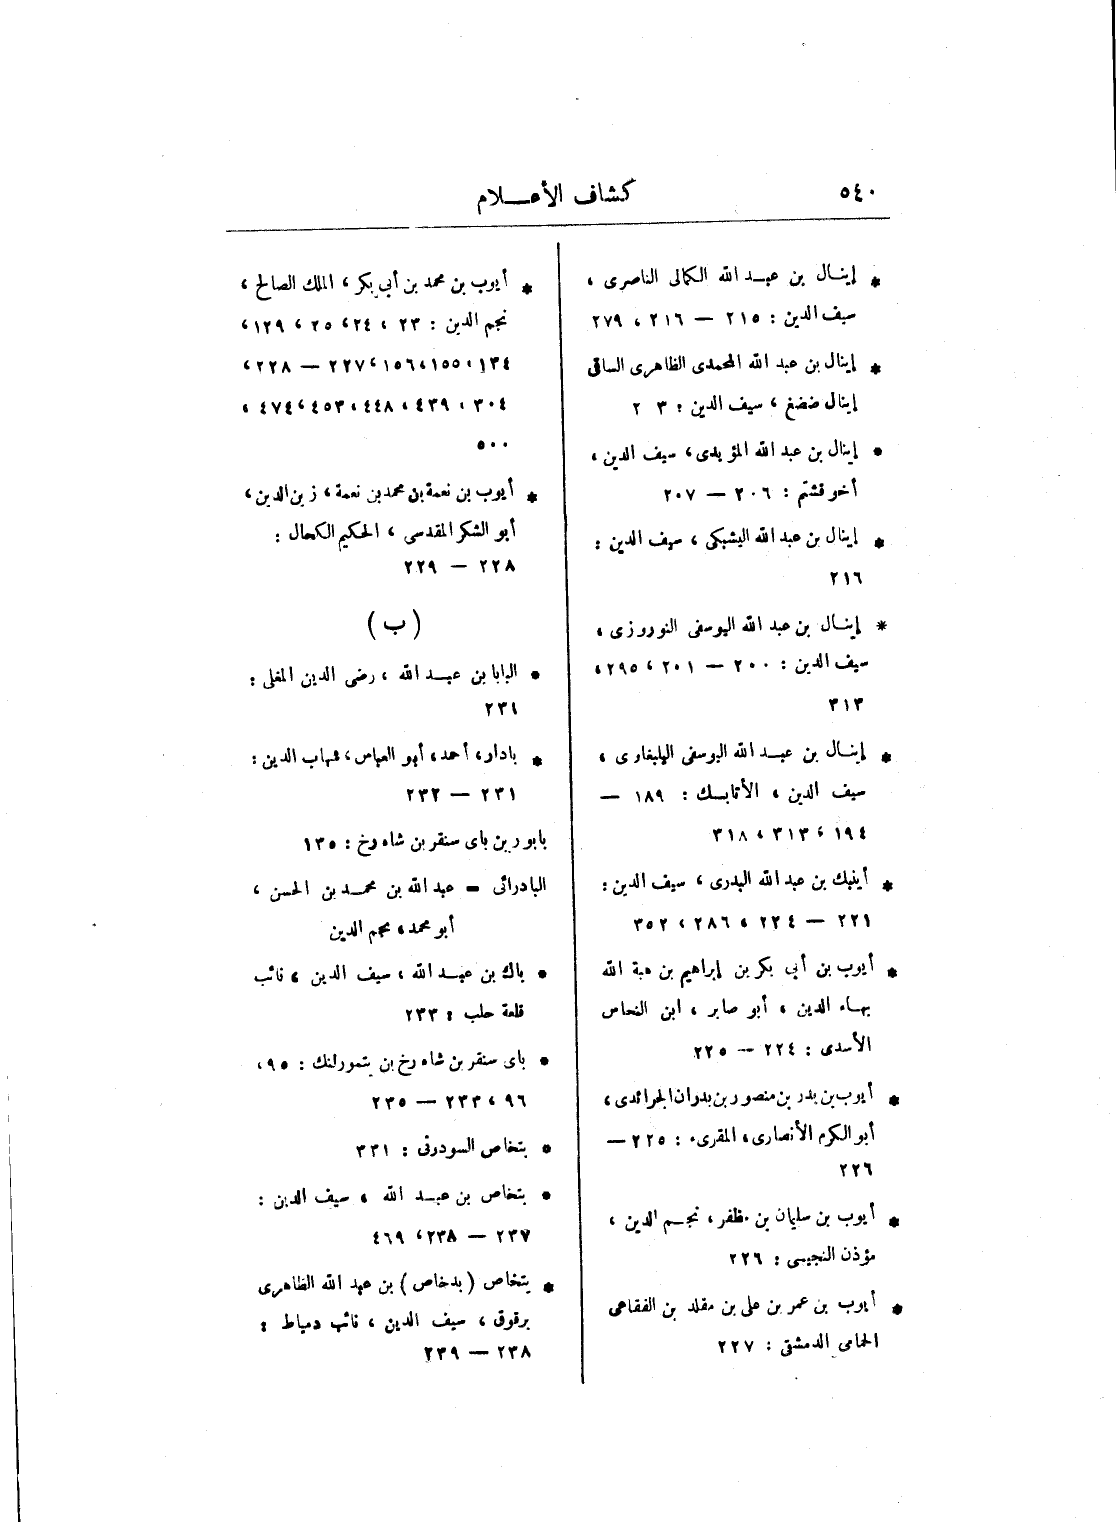 ٥٤٠
كشاف الأعلام
* إينال بن عبد الله الكمالى الناصرى ،
سيف الدين : ٢١٥ — ٢١٦ ، ٢٧٩
* إينال بن عبد الله المحمدى الظاهرى الساقى
إينال ضضغ ، سيف الدين : ٢٠٣
* إينال بن عبد الله المؤيدى ، سيف الدين ،
أخو قشتم : ٢٠٦ — ٢٠٧
* إينال بن عبد الله اليشبكى ، سيف الدين :
٢١٦
* إينال بن عبد الله اليوسفى النوروزى ،
سيف الدين : ٢٠٠ — ٢٠١ ، ٢٩٥ ،
٣١٣
* إينال بن عبد الله اليوسفى اليلبغاوى ،
سيف الدين ، الأتابك : ١٨٩ —
١٩٤ ، ٣١٣ ، ٣١٨
* أينبك بن عبد الله البدرى ، سيف الدين :
٢٢١ — ٢٢٤ ، ٢٨٦ ، ٣٥٢
* أيوب بن أبى بكر بن إبراهيم بن هبة الله
بهاء الدين ، أبو صابر ، ابن النحاس
الأسدى : ٢٢٤ — ٢٢٥
* أيوب بن بدر بن منصور بن بدوان الجرائدى ،
أبو الكرم الأنصارى ، المقرىء : ٢٢٥ —
٢٢٦
* أيوب بن سليمان بن مظفر ، نجم الدين ،
مؤذن النجيبى : ٢٢٦
* أيوب بن عمر بن على بن مقلد بن الفقاعى
الحمامى الدمشقى : ٢٢٧
* أيوب بن محمد بن أبى بكر ، الملك الصالح ،
نجم الدين : ٢٣ ، ٢٤ ، ٢٥ ، ١٢٩ ،
١٣٤ ، ١٥٥ ، ١٥٦ ، ٢٢٧ — ٢٢٨ ،
٣٠٤ ، ٤٣٩ ، ٤٤٨ ، ٤٥٣ ، ٤٧٤ ،
٥٠٠
* أيوب بن نعمة بن محمد بن نعمة ، زين الدين ،
أبو الشكر المقدسى ، الحكيم الكحال :
٢٢٨ — ٢٢٩
( ب )
* البابا بن عبد الله ، رضى الدين المغلى :
٢٣١
* بادار ، أحمد ، أبو العباس ، شهاب الدين :
٢٣١ — ٢٣٢
بابور بن باى سنقر بن شاه رخ : ١٣٥
البادرائى = عبد الله بن محمد بن الحسن ،
أبو محمد ، نجم الدين
* باك بن عبد الله ، سيف الدين ، نائب
قلعة حلب : ٢٣٣
* باى سنقر بن شاه رخ بن يتمورلنك : ٩٥ ،
٩٦ ، ٢٣٣ — ٢٣٥
* بتخاص السودونى : ٣٣١
* بتخاص بن عبد الله ، سيف الدين :
٢٣٧ — ٢٣٨ ، ٤٦٩
* يتخاص ( بدخاص ) بن عبد الله الظاهرى
برقوق ، سيف الدين ، نائب دمياط :
٢٣٨ — ٢٣٩